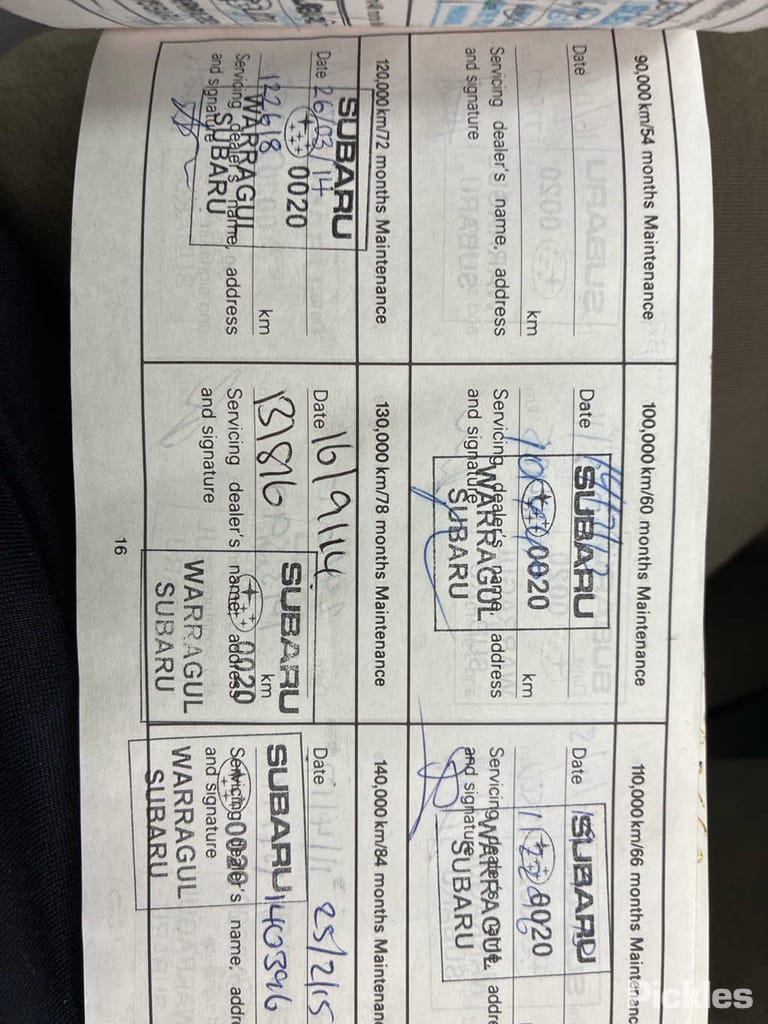 90,000 km/54 months Maintenance
Date
km
Servicing dealer's name, address
and signature
100,000 km/60 months Maintenance
Date
SUBARU
0020
km
Servicing dealer's name, address
and signature
WARRAGUL
SUBARU
110,000 km/66 months Maintenanc
Date
SUBARU
0020
Servicing dealer's name, addre
and signature
WARRAGUL
SUBARU
120,000 km/72 months Maintenance
Date 26/03/14
SUBARU
0020
122618
km
Servicing dealer's name, address
and signature
WARRAGUL
SUBARU
130,000 km/78 months Maintenance
Date 16/9/14
131816
km
SUBARU
0020
Servicing dealer's name, address
and signature
WARRAGUL
SUBARU
140,000 km/84 months Maintenanc
Date 25/2/15
SUBARU
140396
0020
Servicing dealer's name, addre
and signature
WARRAGUL
SUBARU
16
Pickles